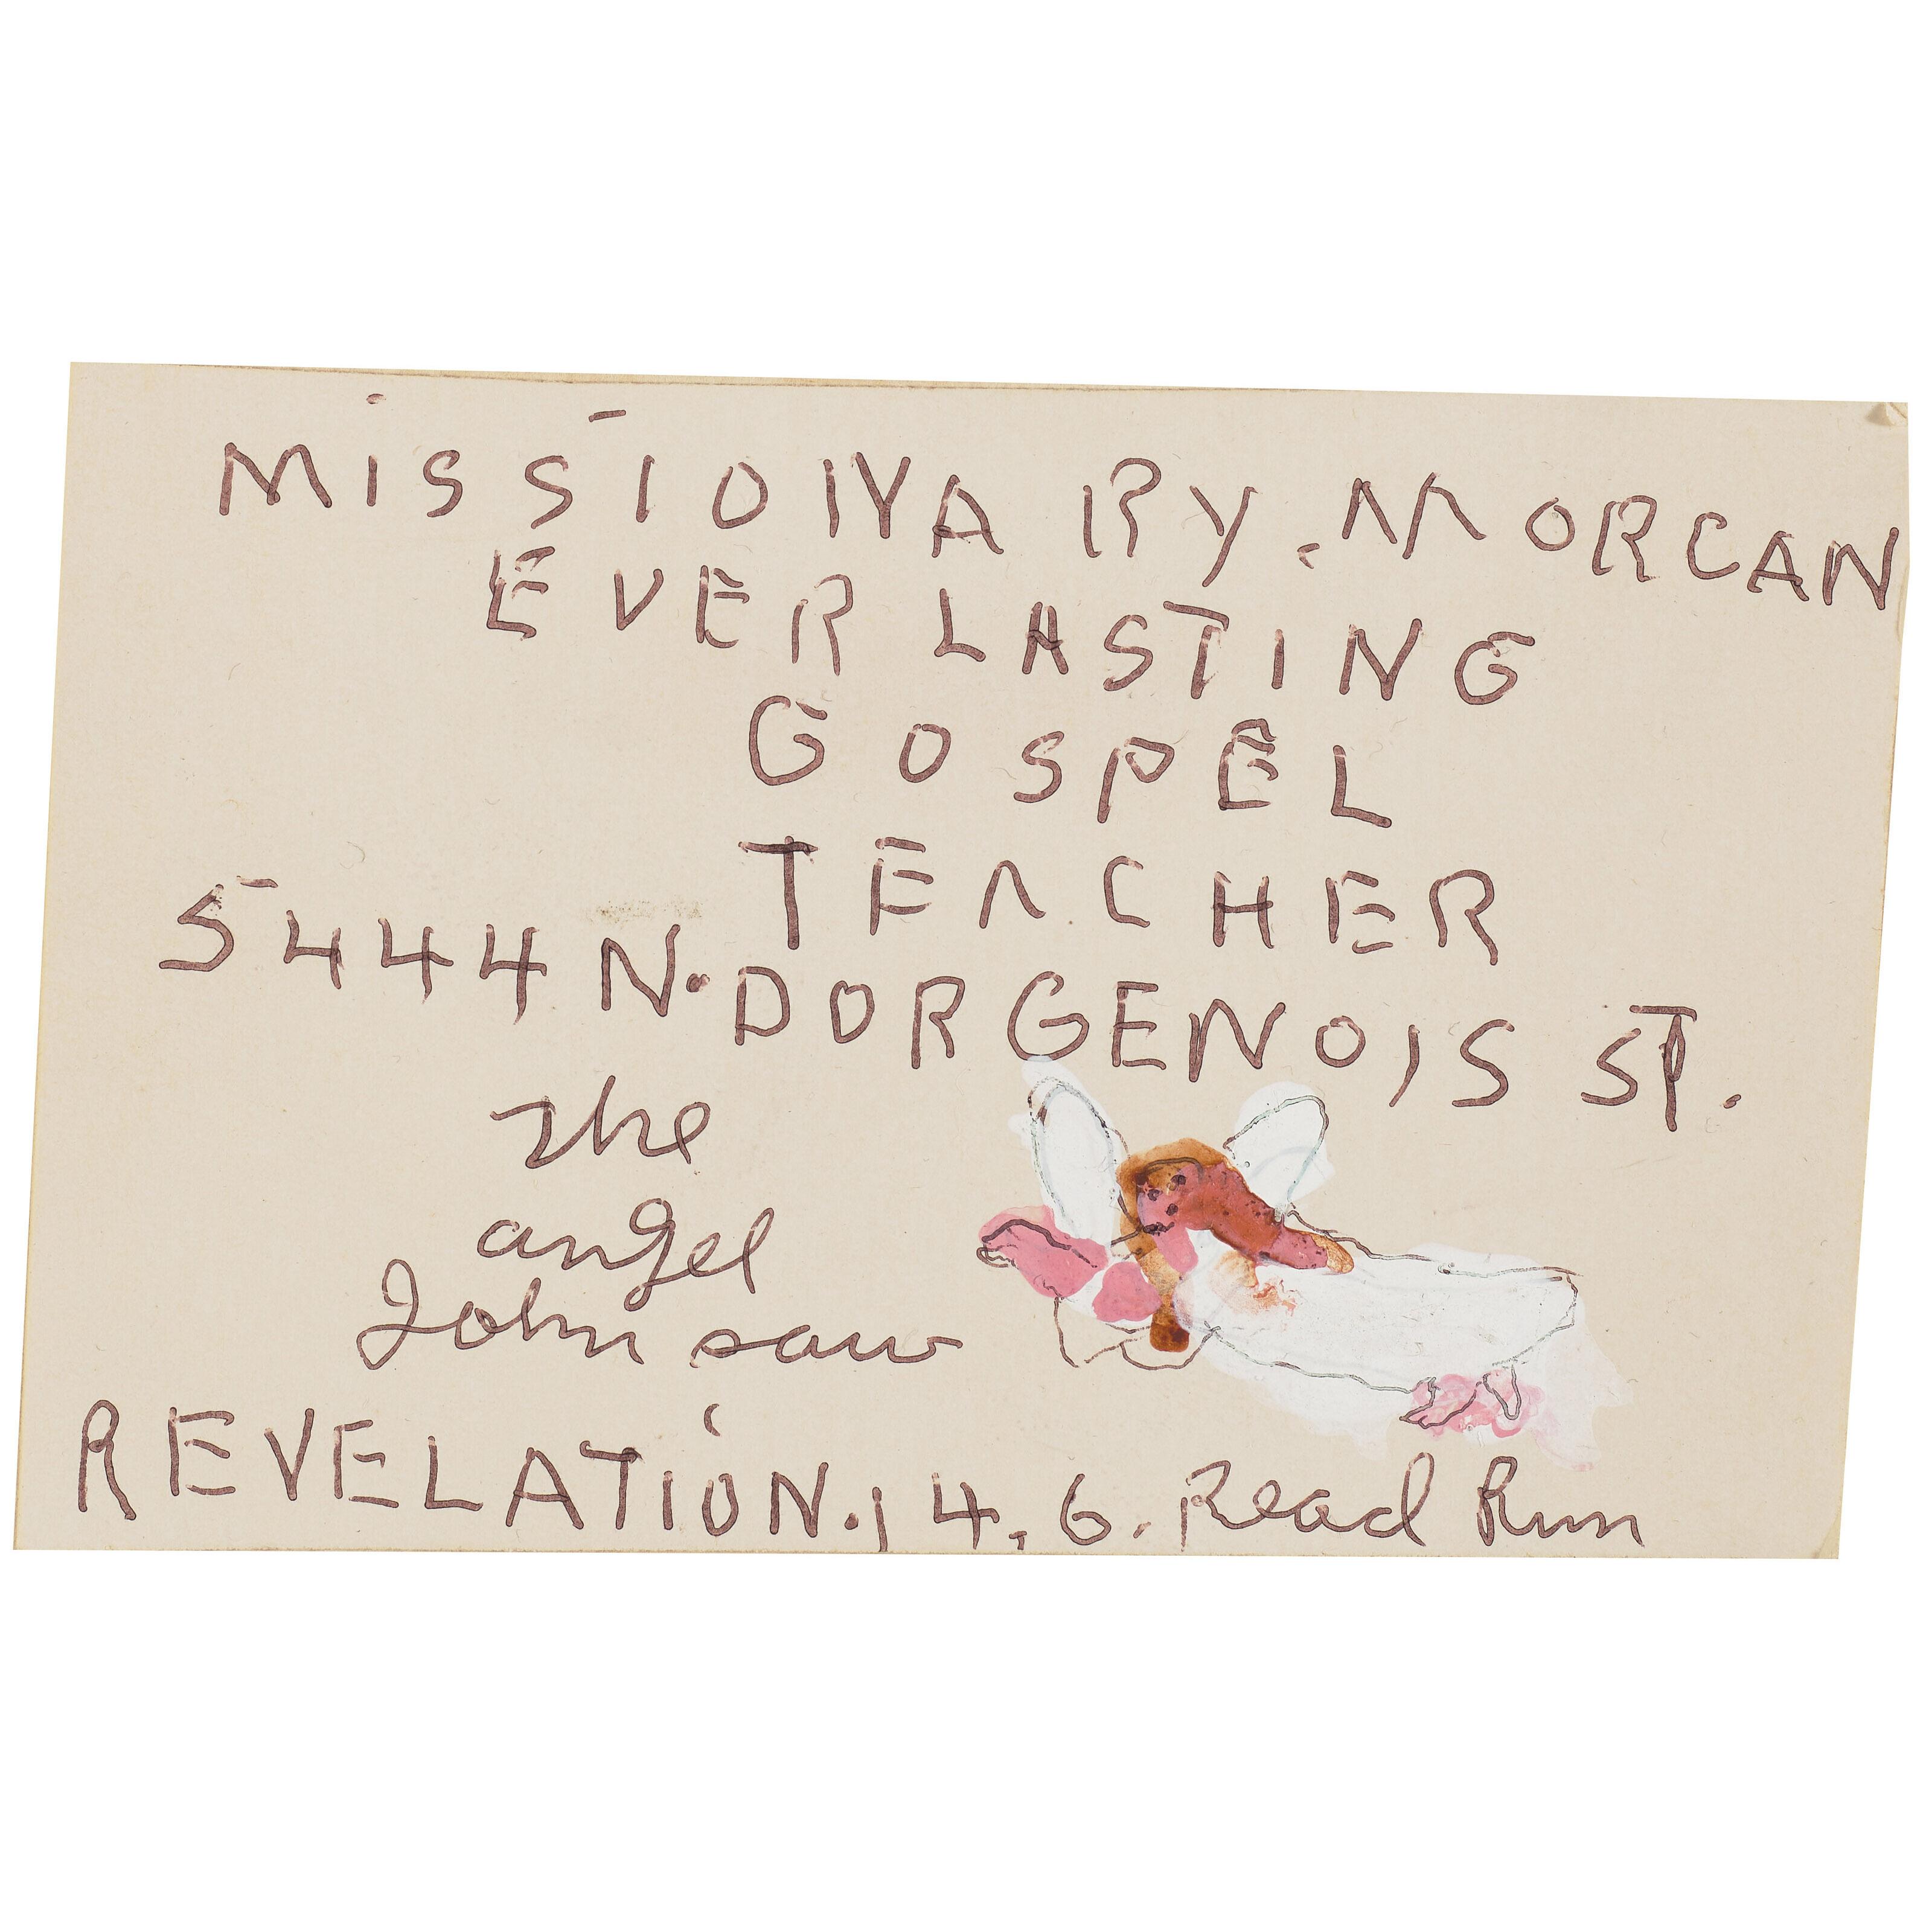 MiSSIONARY. MORGAN
EVERLASTING
GOSPEL
TEACHER
5444 N. DORGENOIS ST.
The
angel
John saw
REVELATION. 14. 6. Read Run